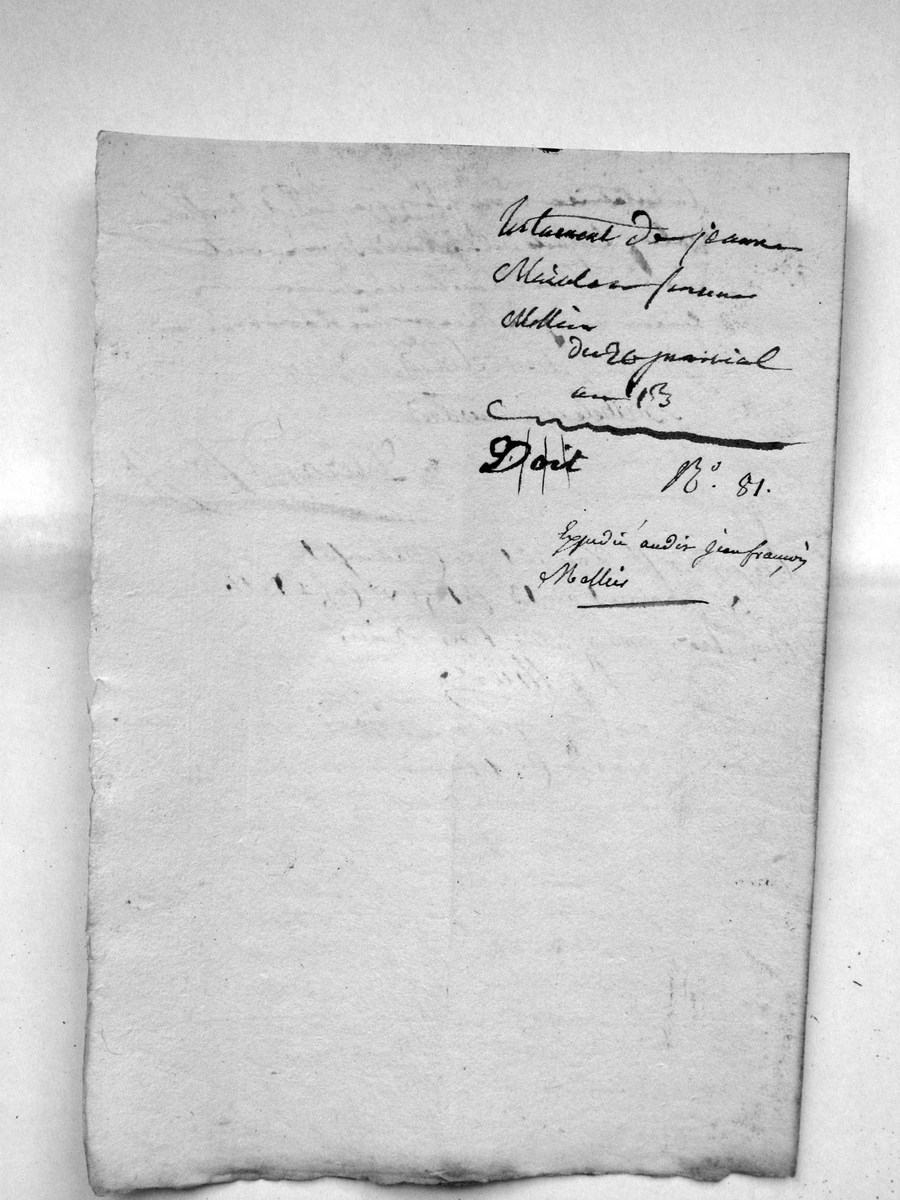 Testament de jeanne
femme
Mellier
du 26 prairial
an 13
Doit
N.º 81.
Expedié audit jean françois
Mellier